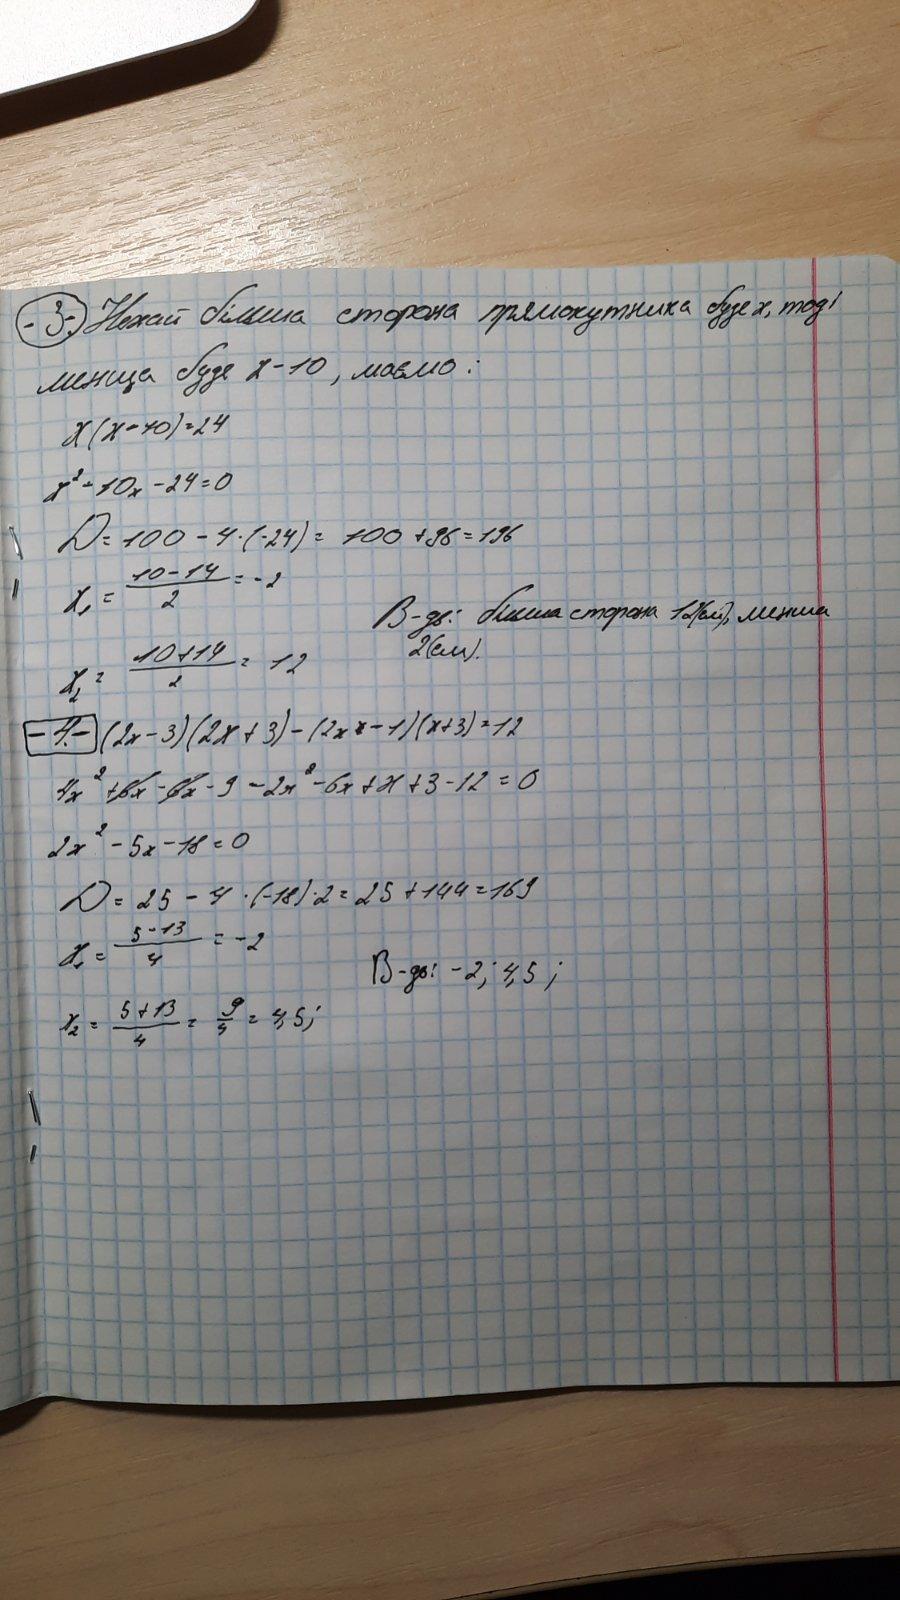 -3-) Нехай більша сторона прямокутника буде x, тоді
менша буде x-10, маємо:
x(x-10)=24
x²-10x-24=0
D=100-4·(-24)=100+96=196
x₁=(10-14)/2=-2
В-дь: більша сторона 12(см), менша
2(см).
x₂=(10+14)/2=12
-4.- (2x-3)(2x+3)-(2x-1)(x+3)=12
4x²+6x-6x-9-2x²-6x+x+3-12=0
2x²-5x-18=0
D=25-4·(-18)·2=25+144=169
x₁=(5-13)/4=-2
В-дь: -2; 4,5;
x₂=(5+13)/4=9/4=4,5;